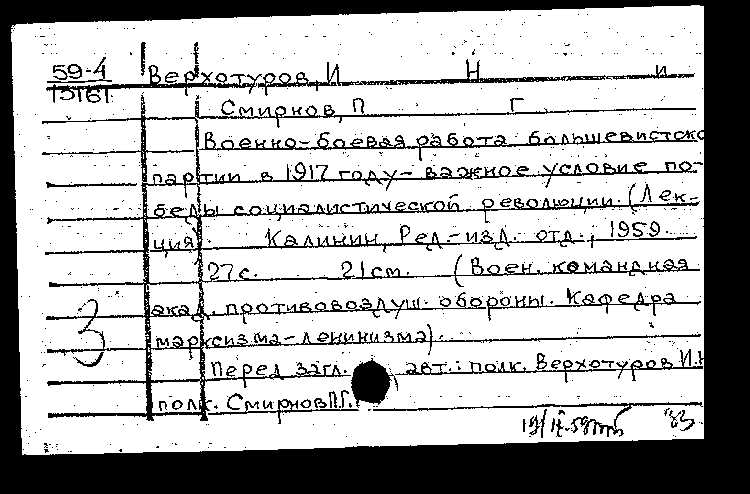 59-4 Верхотуров, И Н и
13161
Смирнов, П Г
Военно-боевая работа большевистско
партии в 1917 году - важное условие по-
беды социалистической революции. (Лек-
ция). Калинин, Ред.-изд. отд., 1959.
27с. 21см. (Воен. командная
акад. противовоздуш. обороны. Кафедра
3
марксизма-ленинизма).
Перед загл. авт.: полк. Верхотуров И.Н
полк. Смирнов П.Г.